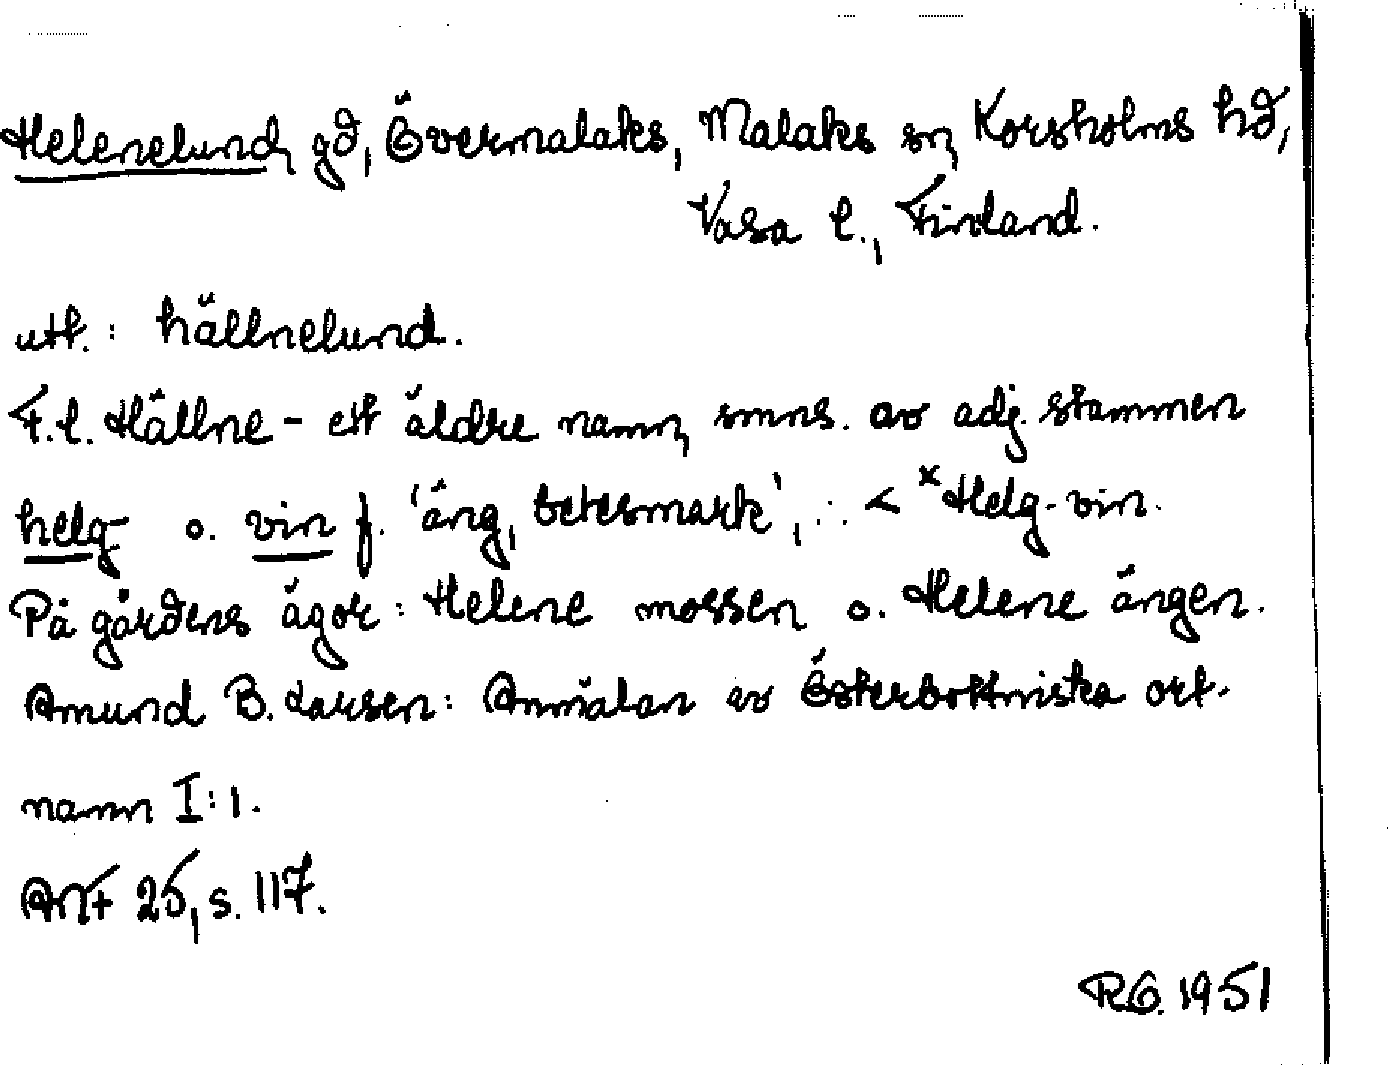 Helenelund gd, Övermalaks, Malaks sn, Korsholms hd,
Vasa l., Finland.
utt.: hällnelund.
F.l. Hällne - ett äldre namn, smns. av adj. stammen
helg- o. vin f. 'äng, betesmark', ∴ < *Helg-vin.
På gårdens ägor: Helene mossen o. Helene ängen.
Amund B. Larsen: Anmälan av Österbottniska ort-
namn I:1.
ANF 25, s. 117.
RG. 1951